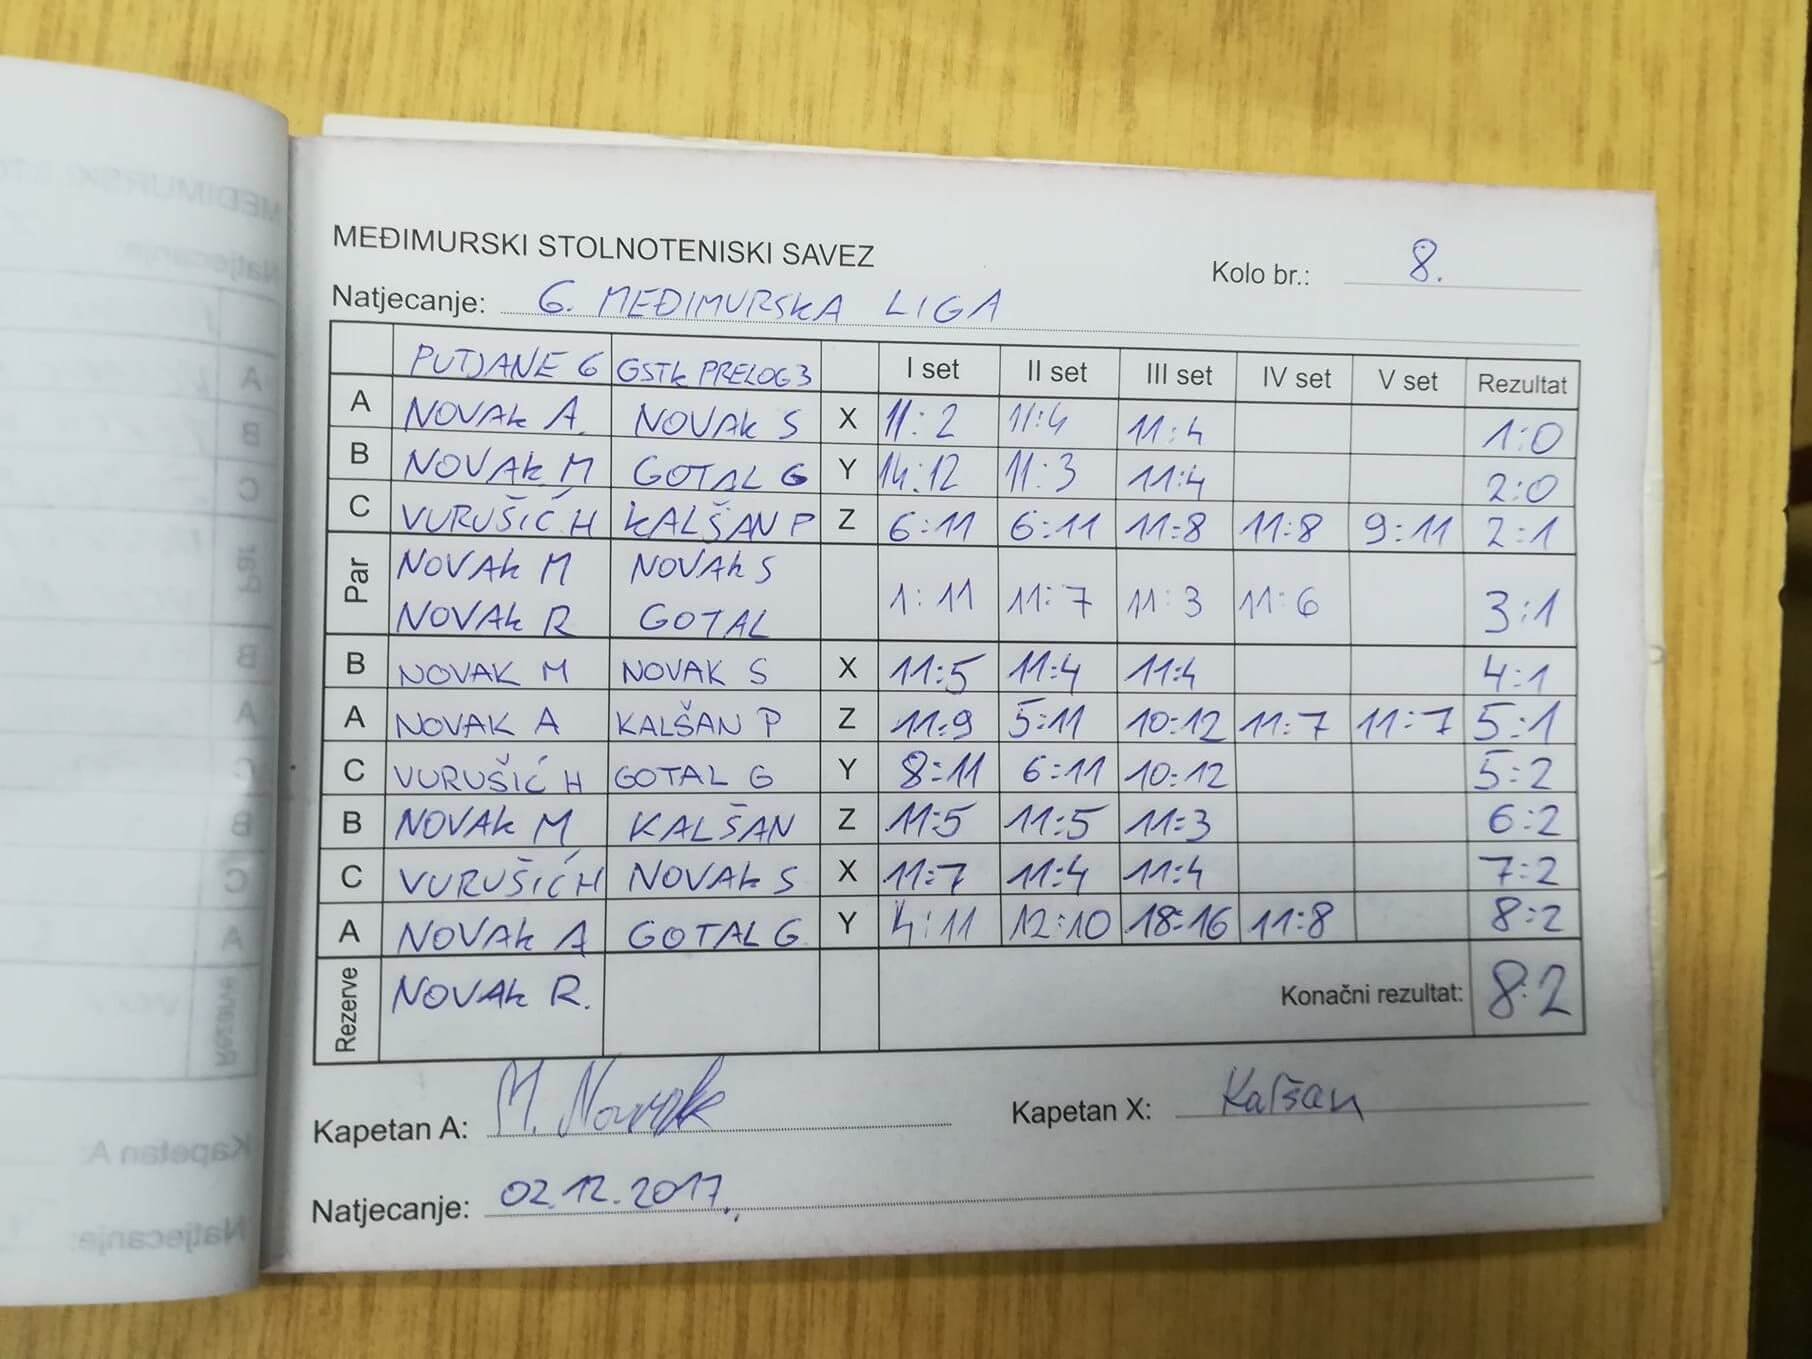 MEĐIMURSKI STOLNOTENISKI SAVEZ
Kolo br.: 8.
Natjecanje: 6. MEĐIMURSKA LIGA
PUTJANE 6 GSTK PRELOG 3 I set II set III set IV set V set Rezultat
A NOVAK A. NOVAK S X 11:2 11:4 11:4 1:0
B NOVAK M GOTAL G Y 14:12 11:3 11:4 2:0
C VURUŠIĆ H KALŠAN P Z 6:11 6:11 11:8 11:8 9:11 2:1
Par NOVAK M NOVAK S 1:11 11:7 11:3 11:6 3:1
NOVAK R GOTAL
B NOVAK M NOVAK S X 11:5 11:4 11:4 4:1
A NOVAK A KALŠAN P Z 11:9 5:11 10:12 11:7 11:7 5:1
C VURUŠIĆ H GOTAL G Y 8:11 6:11 10:12 5:2
B NOVAK M KALŠAN Z 11:5 11:5 11:3 6:2
C VURUŠIĆ H NOVAK S X 11:7 11:4 11:4 7:2
A NOVAK A GOTAL G Y 4:11 12:10 18:16 11:8 8:2
Rezerve NOVAK R. Konačni rezultat: 8:2
Kapetan A: M. Novak Kapetan X: Kalšan
Natjecanje: 02.12.2017.